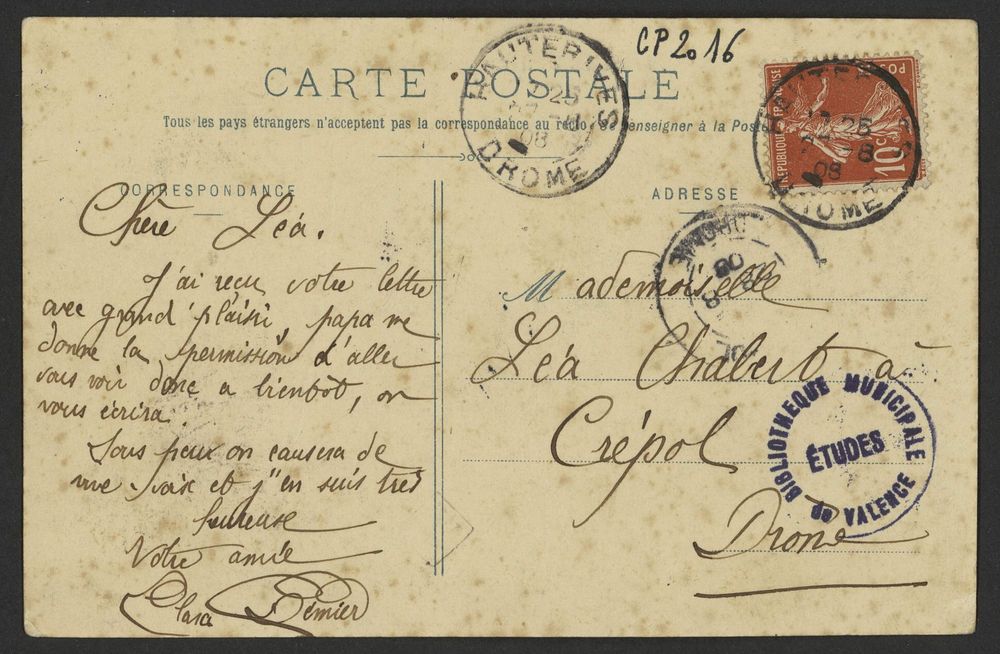 CP2016
CARTE POSTALE
Tous les pays étrangers n'acceptent pas la correspondance au recto, Se renseigner à la Poste
HAUTERIVES
25
08
DROME
RÉPUBLIQUE FRANÇAISE
POSTES
10c
25
8
08
DROME
CORRESPONDANCE
Chère Léa.
J'ai reçu votre lettre
avec grand plaisir, papa me
donne la permission d'aller
vous voir donc a bientot, on
vous écrira.
Sous peux on causera de
vive voix et j'en suis très
heureuse
Votre amie
Clara Bernier
ADRESSE
DROME
8
08
Mademoiselle
Léa Chabert à
Crépol
Drome
BIBLIOTHEQUE MUNICIPALE
ÉTUDES
de VALENCE